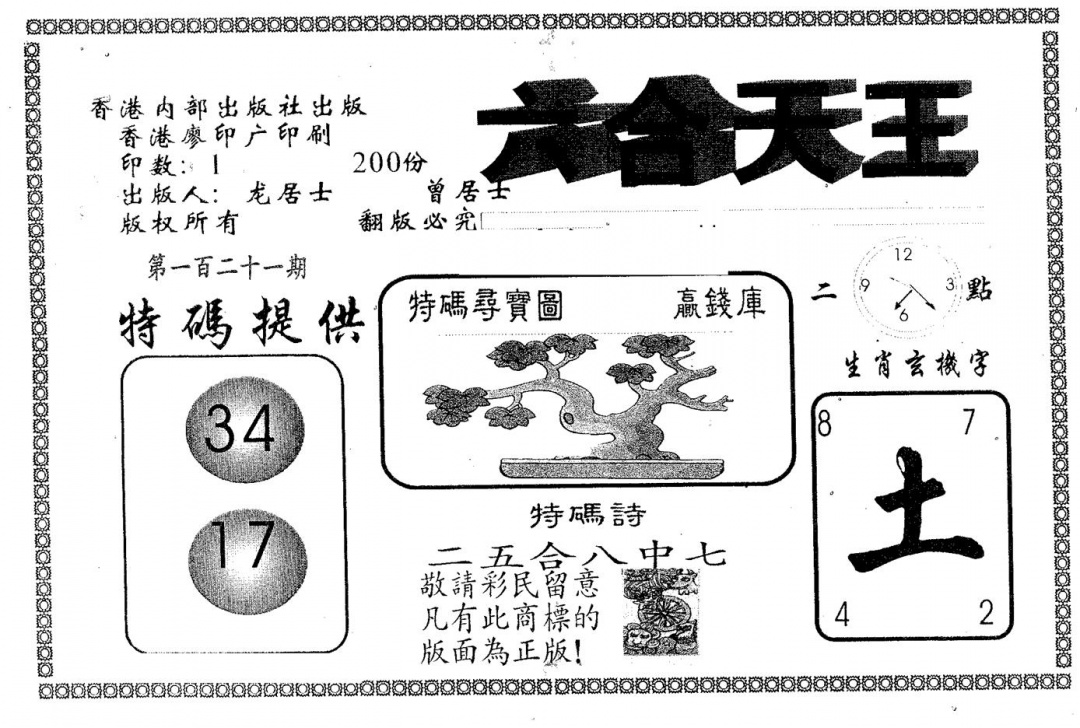 六合天王
香港内部出版社出版
香港廖印广印刷
印数: 1 200份
出版人: 龙居士 曾居士
版权所有 翻版必究
第一百二十一期
特碼提供
34
17
特碼尋寶圖 贏錢庫
特碼詩
二五合八中七
敬請彩民留意
凡有此商標的
版面為正版!
二 點
12
9 3
6
生肖玄機字
8 7
土
4 2